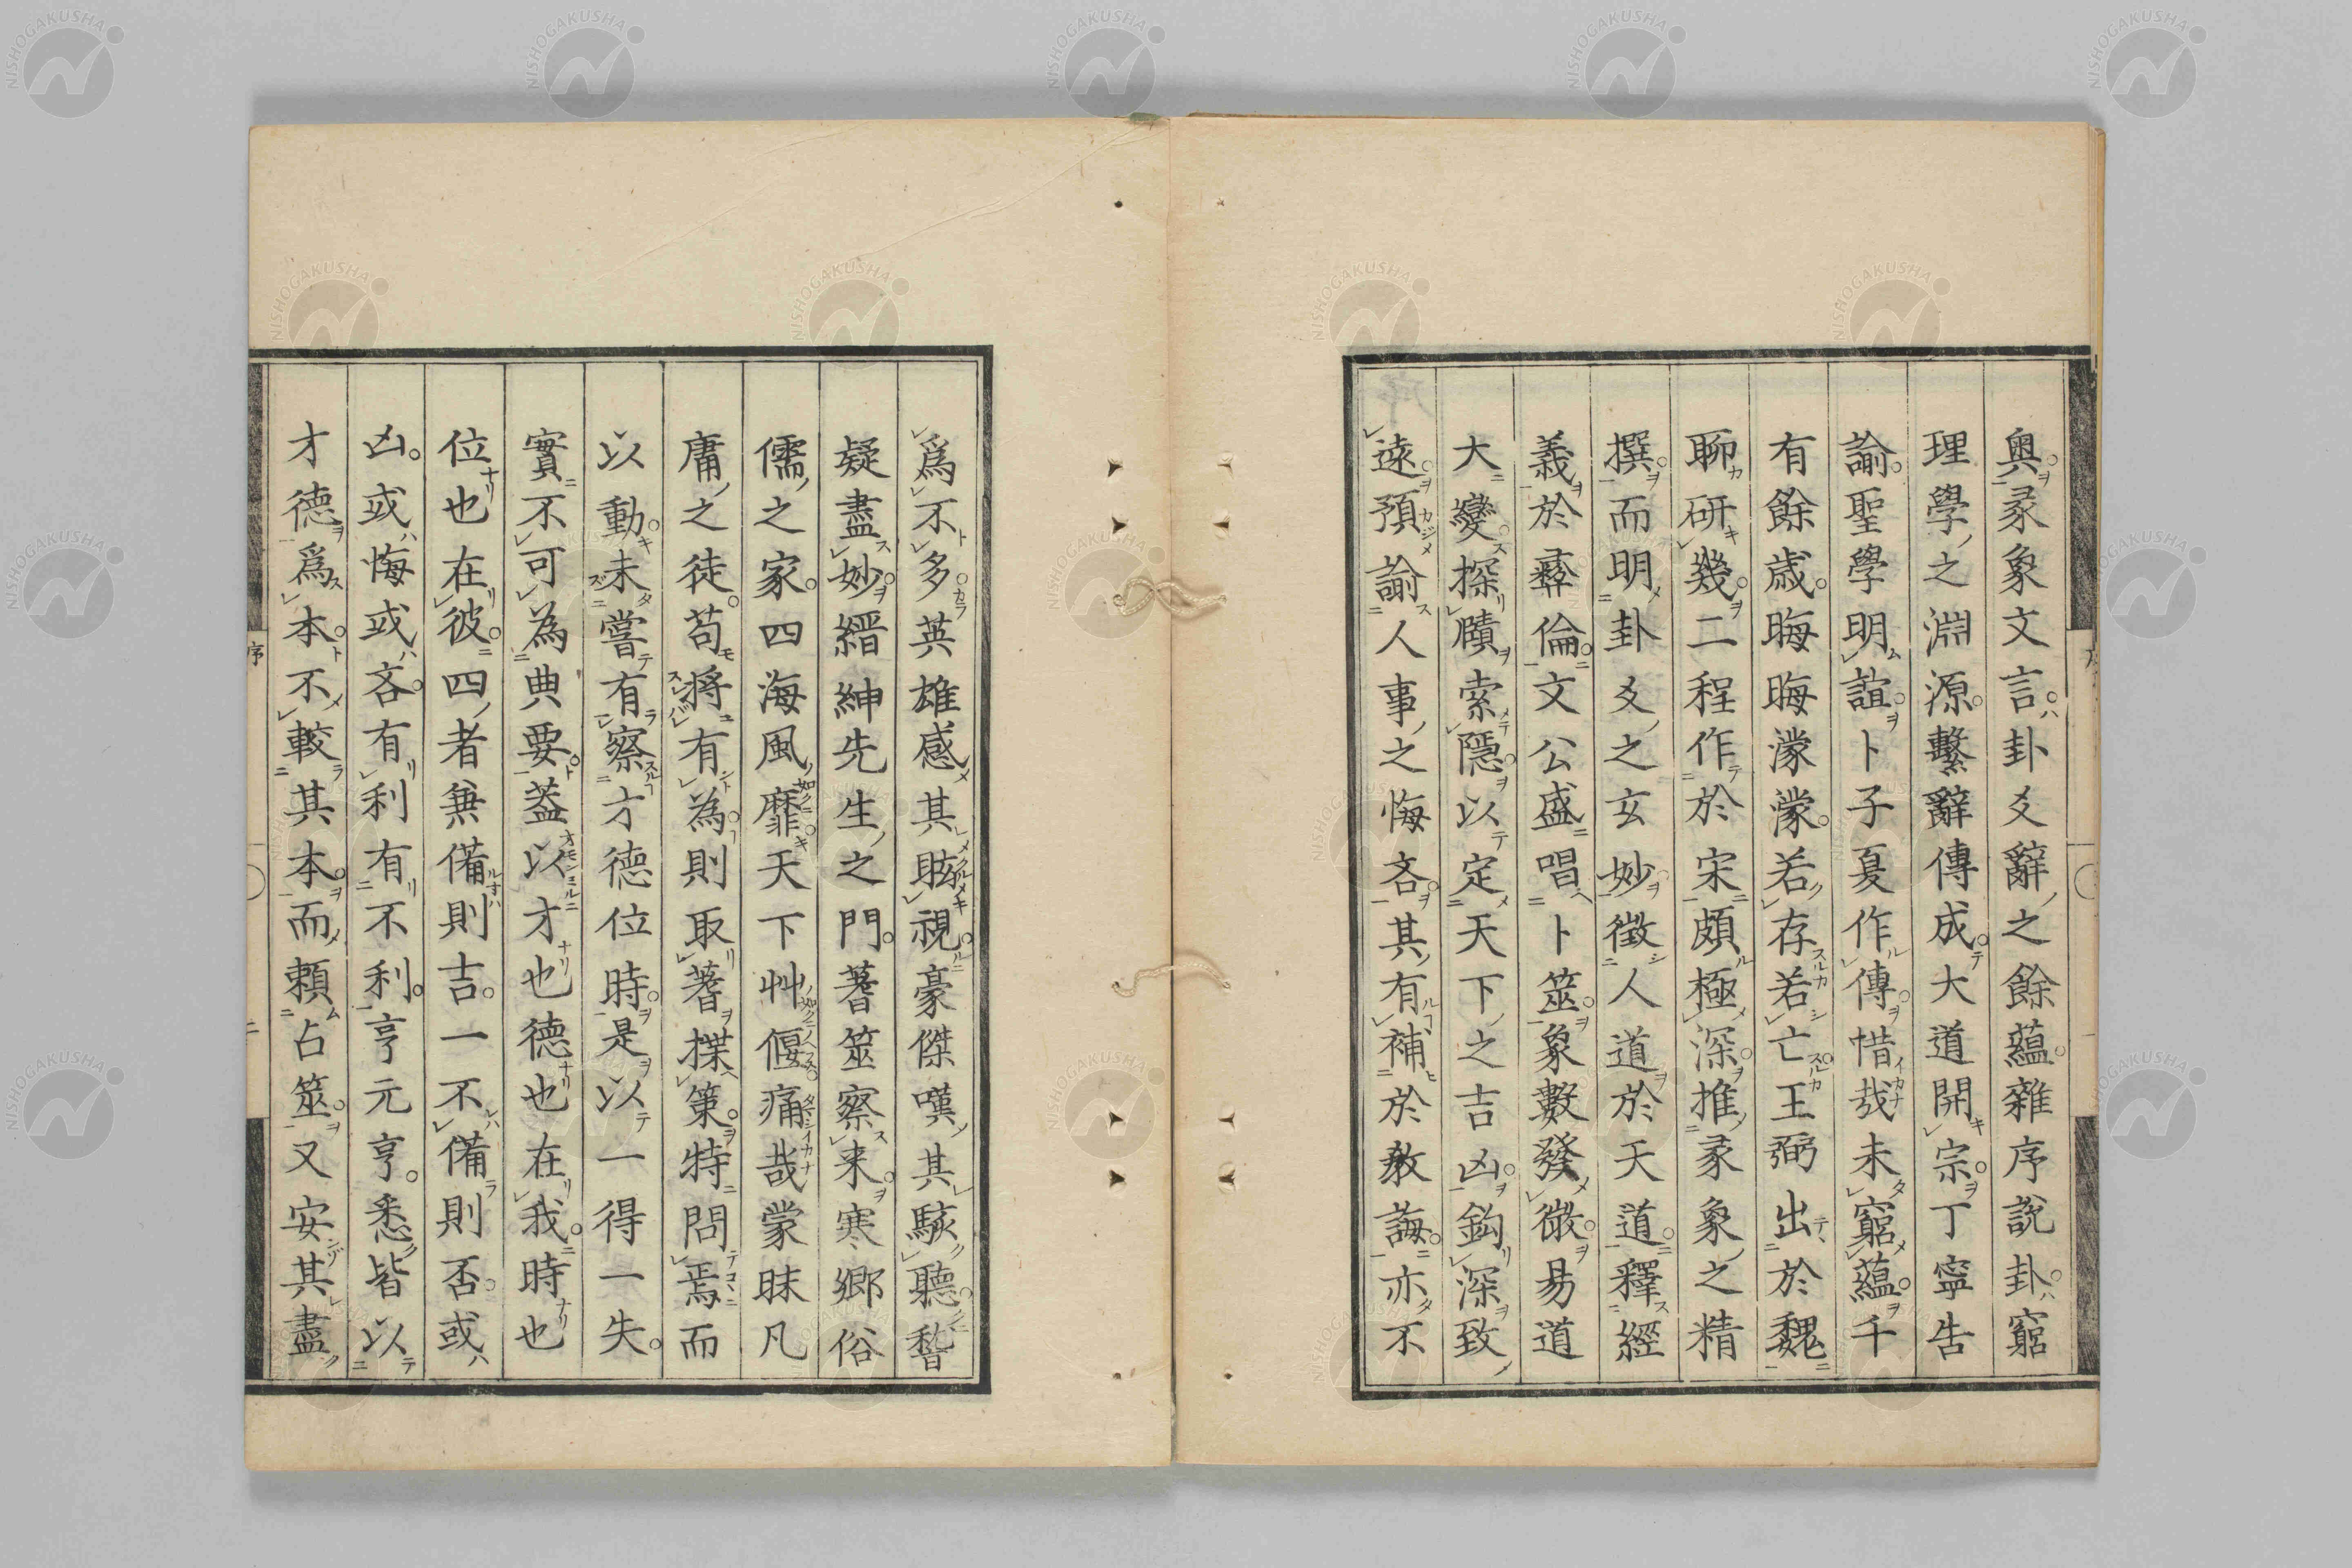 奧彖象文言卦爻辭之餘蘊雜序說卦窮
理學之淵源繫辭傳成大道開宗丁寧告
諭聖學明誼卜子夏作傳惜哉未窮蘊千
有餘歲晦晦濛濛若存若亡王弼出於魏
聊研幾二程作於宋頗極深推彖象之精
撰而明卦爻之玄妙徵人道於天道釋經
義於彝倫文公盛唱卜筮象數發微易道
大變探賾索隱以定天下之吉凶鈎深致
遠預諭人事之悔吝其有補於敎誨亦不
爲不多英雄感其眩視豪傑嘆其駭聽
疑盡妙縉紳先生之門蓍筮察来寒鄉俗
儒之家四海風靡天下艸偃痛哉蒙昧凡
庸之徒苟將有為則取蓍揲策特問焉而
以動未嘗有察才德位時是以一得一失
實不可為典要葢以才也德也在我時也
位也在彼四者兼備則吉一不備則否或
凶或悔或吝有利有不利亨元亨悉皆以
才德爲本不較其本而賴占筮又安其盡
序
二
NISHOGAKUSHA